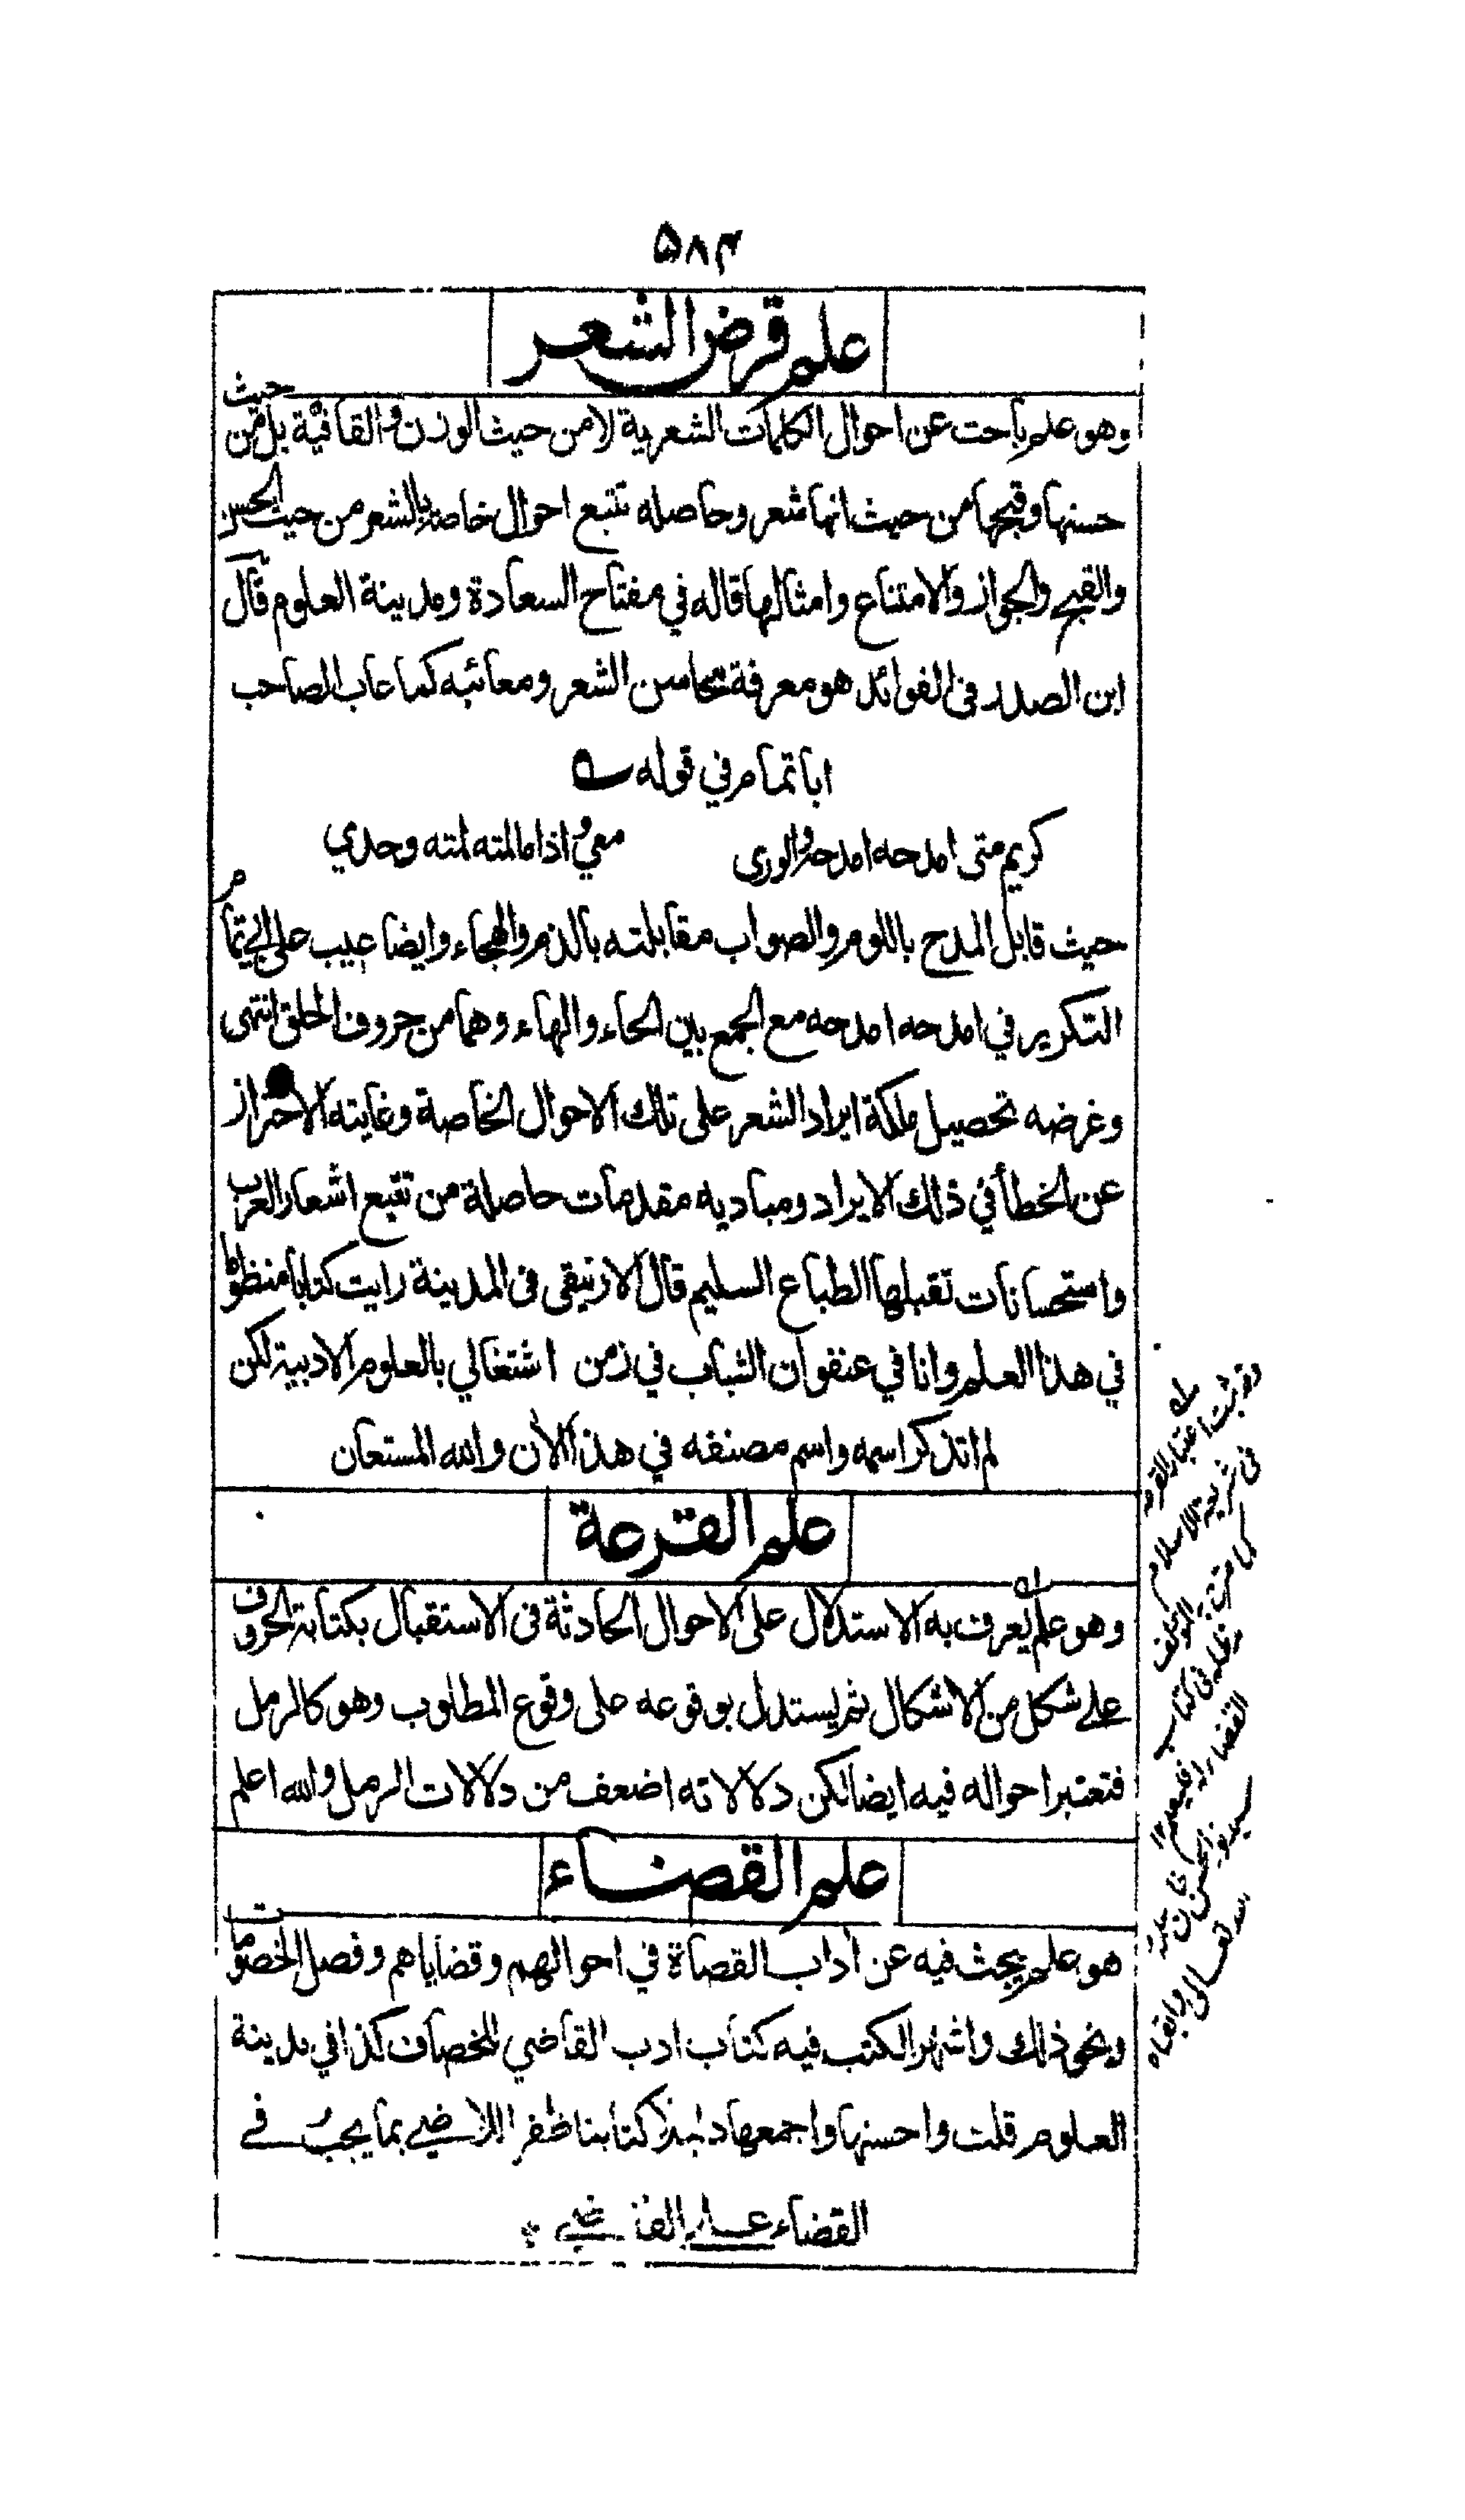 ۵۸۴
علم قرض الشعر
وهو علم باحث عن احوال الكلمات الشعرية لا من حيث الوزن والقافية بل من حيث
حسنها وقبحها من حيث انها شعر وحاصله تتبع احوال خاصة بالشعر من حيث الحسن
والقبح والجواز والامتناع وامثالها قاله في مفتاح السعادة ومدينة العلوم قال
ابن الصدر في الفوائد هو معرفة محاسن الشعر ومعائبه كما عاب الصاحب
ابا تمام في قوله
كريم متى امدحه امدحه والورى معي واذا ما لمته لمته وحدي
حيث قابل المدح باللوم والصواب مقابلته بالذم والهجاء وايضا عيب على ابي تمام
التكرير في امدحه امدحه مع الجمع بين الحاء والهاء وهما من حروف الحلق انتهى
وغرضه تحصيل ملكة ايراد الشعر على تلك الاحوال الخاصة وغايته الاحتراز
عن الخطأ في ذلك الايراد ومباديه مقدمات حاصلة من تتبع اشعار العرب
واستحسانات تقبلها الطباع السليم قال الارنيقى فى المدينة رايت كتابا منظوما
في هذا العلم وانا في عنفوان الشباب في زمن اشتغالي بالعلوم الادبية لكن
لم اتذكر اسمه واسم مصنفه في هذا الآن والله المستعان
علم القرعة
وهو علم يعرف به الاستدلال على الاحوال الحادثة فى الاستقبال بكتابة الحروف
على شكل من الاشكال ثم يستدل بوقوعه على وقوع المطلوب وهو كالرمل
فتعتبر احواله فيه ايضا لكن دلالاته اضعف من دلالات الرمل والله اعلم
علم القضاء
هو علم يبحث فيه عن آداب القضاة في احوالهم وقضاياهم وفصل الخصومات
ونحو ذلك واشهر الكتب فيه كتاب ادب القاضي للخصاف كذا في مدينة
العلوم قلت واحسنها واجمعها كتابنا ظفر اللاضي بما يجب في
القضاء على القاضي
وقد ثبت اعتبار القرعة
فى شريعة الاسلام
كما صرح به المؤلف
مد ظله فى كتاب
القضاء
سيد نور الحسن خان
سلمه الله تعالى وابقاه